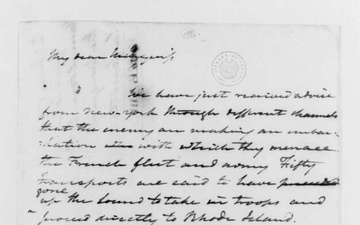 My dear
We have just received advice
from New-York through different channels
that the enemy are making an embar-
cation with which they menace
the French fleet and army Fifty
transports are said to have
gone
up the Sound to take in troops and
proceed directly to Rhode Island.